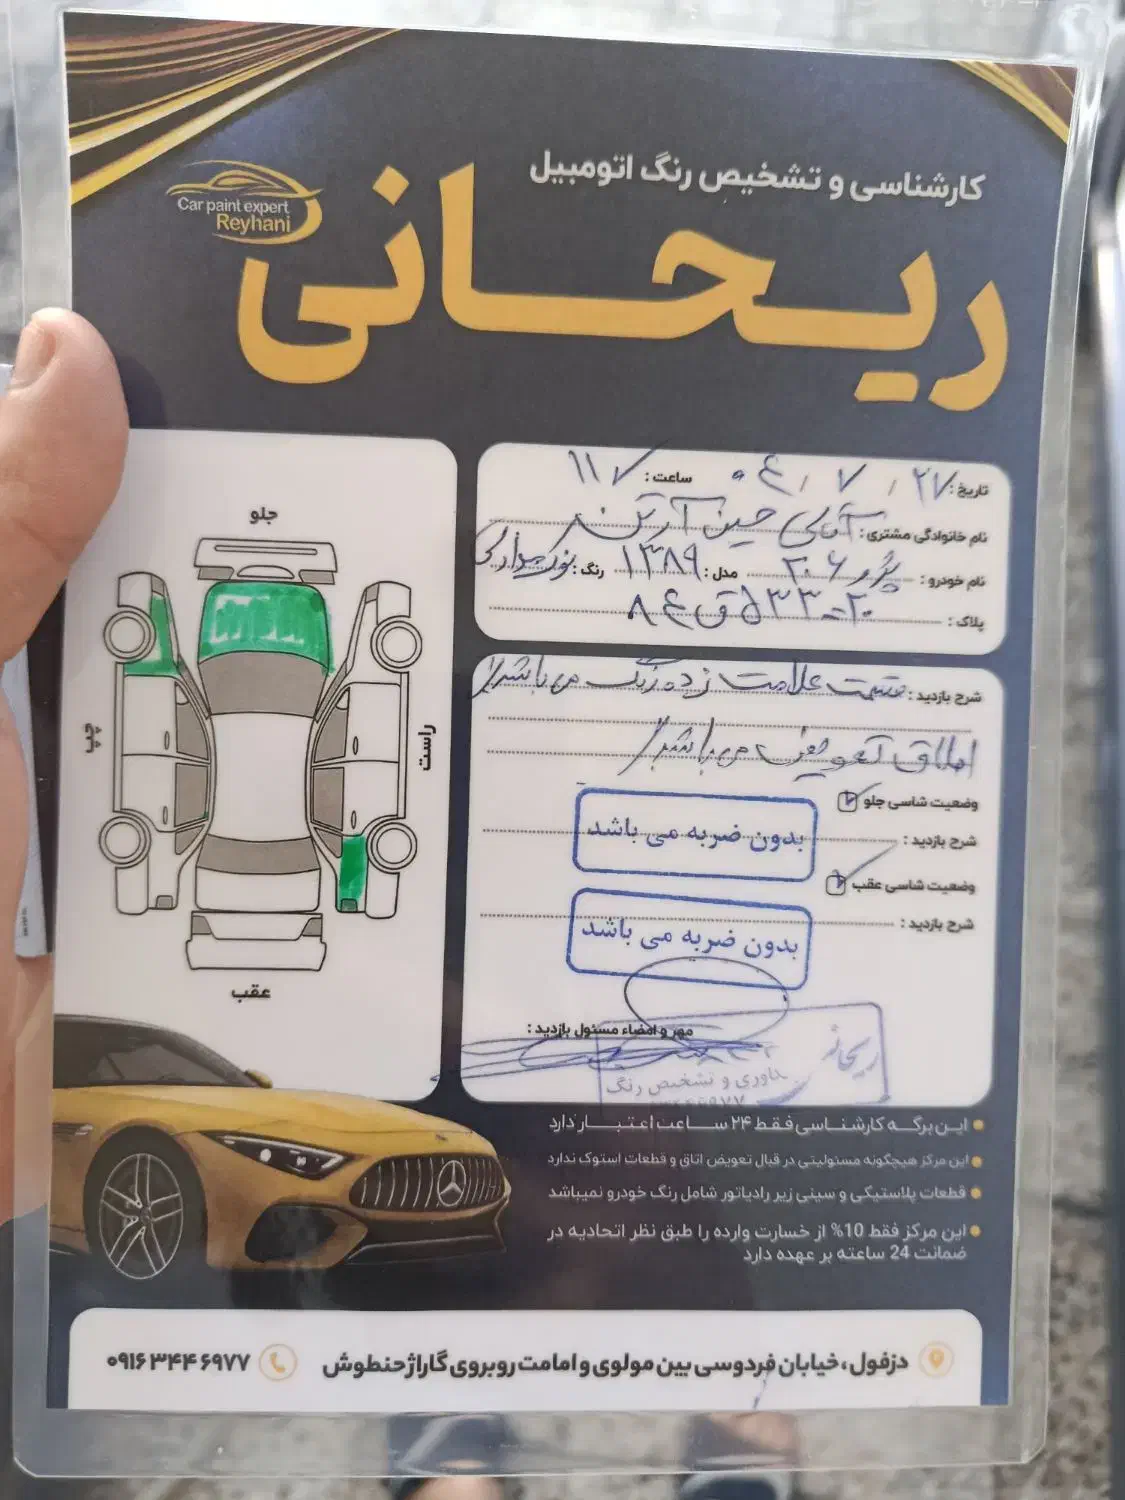 کارشناسی و تشخیص رنگ اتومبیل
ریحانی
Car paint expert
Reyhani
تاریخ: ۲۷ / ۷ / ۰۴ ساعت: ۱۱
نام خانوادگی مشتری: آقای حسین
نام خودرو: پژو ۲۰۶ مدل: ۱۳۸۹ رنگ: نوک مدادی
پلاک:
شرح بازدید: قسمت علامت زده رنگ می باشد
اطاق تعویض می باشد
وضعیت شاسی جلو
شرح بازدید: بدون ضربه می باشد
وضعیت شاسی عقب
شرح بازدید: بدون ضربه می باشد
مهر و امضاء مسئول بازدید:
ریحانی
تشخیص رنگ
جلو
چپ
راست
عقب
این برگه کارشناسی فقط ۲۴ ساعت اعتبار دارد
این مرکز هیچگونه مسئولیتی در قبال تعویض اتاق و قطعات استوک ندارد
قطعات پلاستیکی و سینی زیر رادیاتور شامل رنگ خودرو نمیباشد
این مرکز فقط 10% از خسارت وارده را طبق نظر اتحادیه در
ضمانت 24 ساعته بر عهده دارد
دزفول، خیابان فردوسی بین مولوی و امامت روبروی گاراژ حنطوش
۰۹۱۶ ۳۴۴ ۶۹۷۷